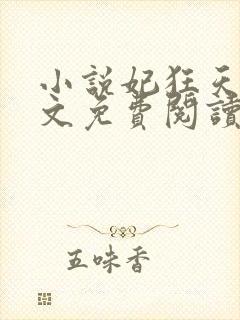 小說妃狂天
文免費閱讀
五味香